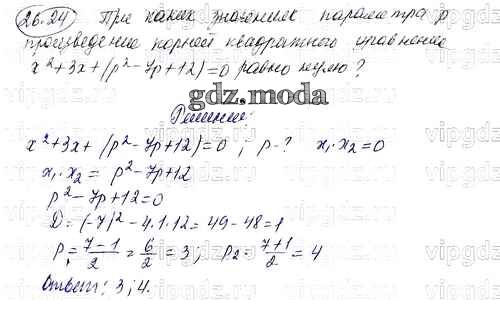 26.24 При каких значениях параметра p
произведение корней квадратного уравнения
x² + 3x + (p² - 7p + 12) = 0 равно нулю?
gdz.moda
Решение:
x² + 3x + (p² - 7p + 12) = 0 ; p - ? x₁·x₂ = 0
x₁·x₂ = p² - 7p + 12
p² - 7p + 12 = 0
D = (-7)² - 4·1·12 = 49 - 48 = 1
p₁ = \frac{7-1}{2} = \frac{6}{2} = 3 ; p₂ = \frac{7+1}{2} = 4
Ответ: 3; 4.